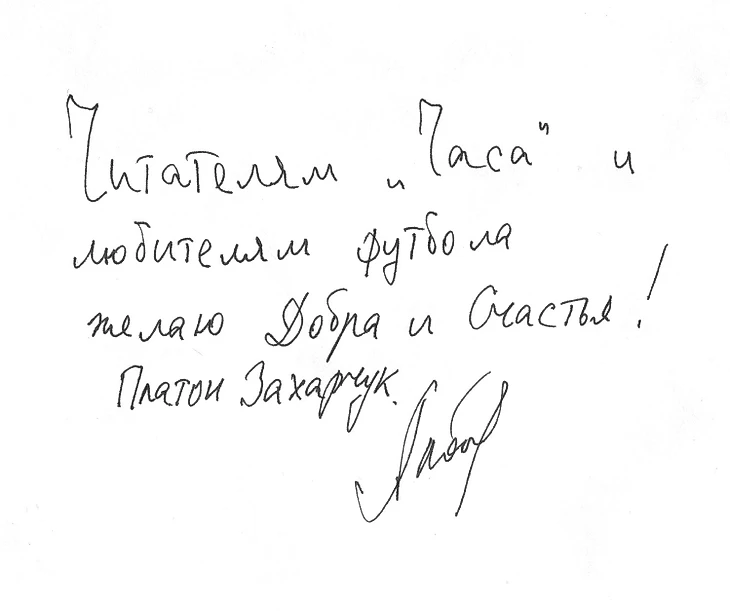 Читателям „Часа" и
любителям футбола
желаю Добра и Счастья!
Платон Захарчук.